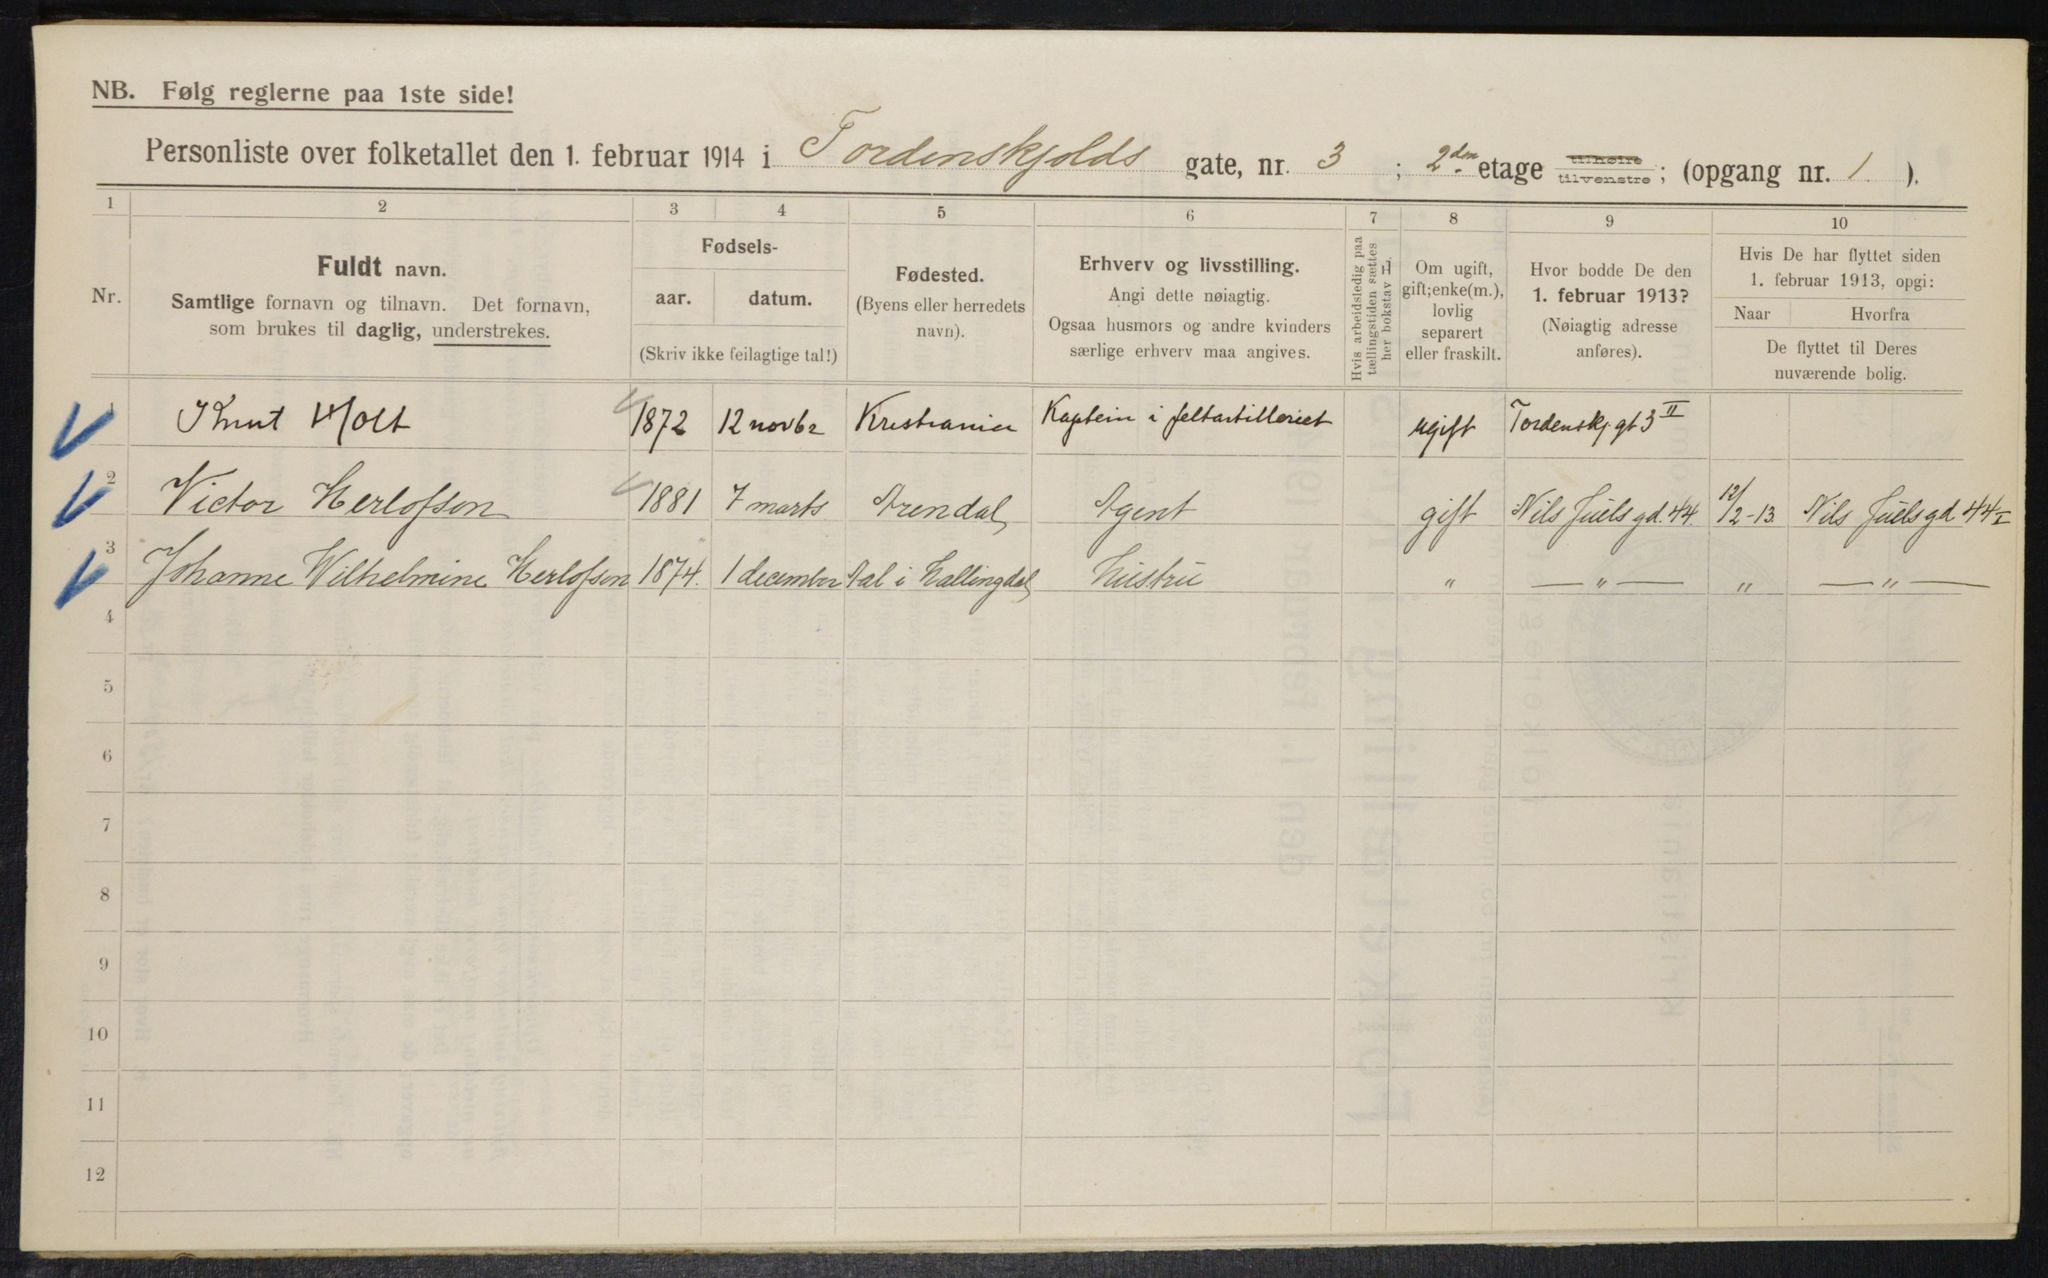 NB. Følg reglerne paa 1ste side!
Personliste over folketallet den 1. februar 1914 i Tordenskjolds gate, nr. 3 ; 2den etage tilhøire tilvenstre ; (opgang nr. 1 ).
1 2 3 4 5 6 7 8 9 10
Nr.
Fuldt navn.
Samtlige fornavn og tilnavn. Det fornavn,
som brukes til daglig, understrekes.
Fødsels-
aar. datum.
(Skriv ikke feilagtige tal!)
Fødested.
(Byens eller herredets
navn).
Erhverv og livsstilling.
Angi dette nøiagtig.
Ogsaa husmors og andre kvinders
særlige erhverv maa angives.
Hvis arbeidsledig paa
tællingstiden sættes
her bokstav L.
Om ugift,
gift; enke(m.),
lovlig
separert
eller fraskilt.
Hvor bodde De den
1. februar 1913?
(Nøiagtig adresse
anføres).
Hvis De har flyttet siden
1. februar 1913, opgi:
Naar Hvorfra
De flyttet til Deres
nuværende bolig.
1 Knut Holt 1872 12 novbr Kristiania Kaptein i feltartilleriet ugift Tordenskj gt 3 II
2 Victor Herlofson 1881 7 marts Arendal Agent gift Nils Juels gd. 44. 12/2-13. Nils Juels gd. 44 I
3 Johanne Wilhelmine Herlofson 1874. 1 december Aal i Hallingdal Hustru " — " — " — " —
4
5
6
7
8
9
10
11
12